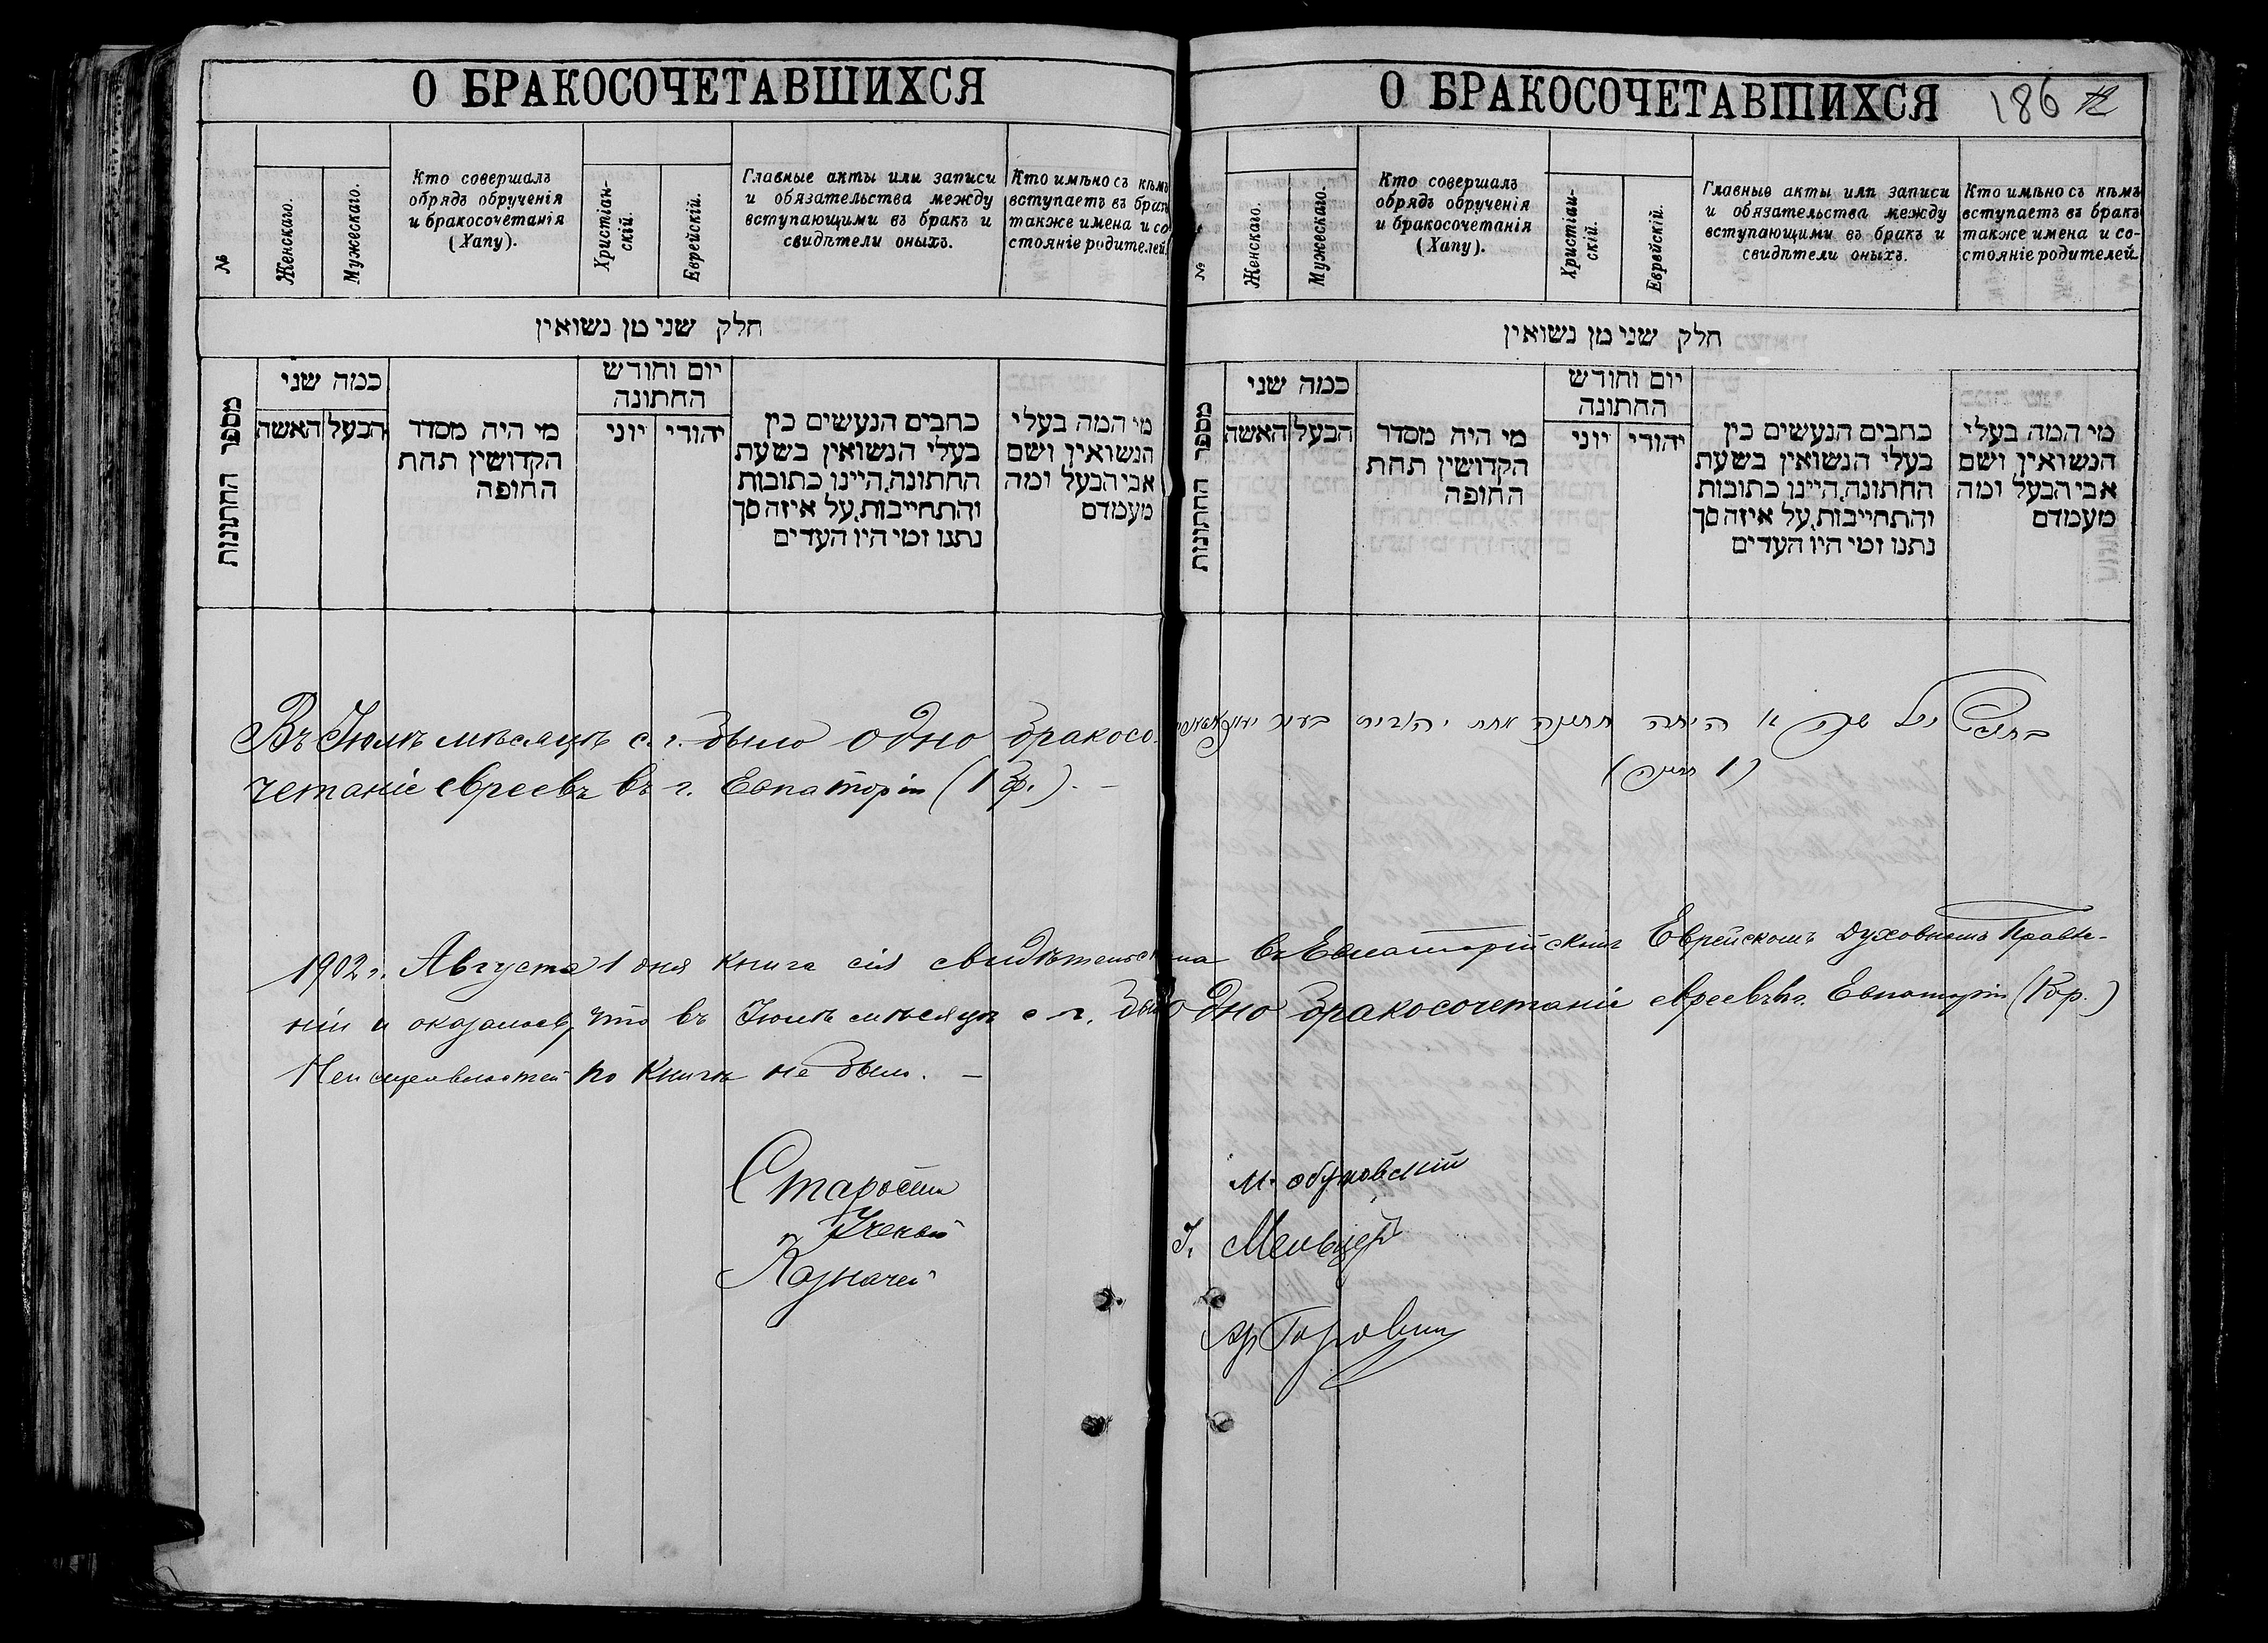 О БРАКОСОЧЕТАВШИХСЯ
№
Женскаго.
Мужескаго.
Кто совершалъ
обрядъ обрученія
и бракосочетанія
(Хапу).
Христіан-
скій.
Еврейскій.
Главные акты или записи
и обязательства между
вступающими въ бракъ и
свидѣтели оныхъ.
Кто имѣно съ кѣмъ
вступаетъ въ бракъ
также имена и со-
стояніе родителей
חלק שני מן נשואין
מספר החתונות
כמה שני
האשה
הבעל
מי היה מסדר
הקדושין תחת
החופה
יום וחודש
החתונה
יוני
יהודי
כתבים הנעשים בין
בעלי הנשואין בשעת
החתונה, היינו כתובות
והתחייבות, על איזה סך
נתנו ומי היו העדים
מי המה בעלי
הנשואין ושם
אבי הבעל ומה
מעמדם
Въ Іюлѣ мѣсяцѣ с. г. было одно бракосо-
четаніе евреевъ въ г. Евпаторіи (1 бр.). –
О БРАКОСОЧЕТАВШИХСЯ
186
№
Женскаго.
Мужескаго.
Кто совершалъ
обрядъ обрученія
и бракосочетанія
(Хапу).
Христіан-
скій.
Еврейскій.
Главные акты или записи
и обязательства между
вступающими въ бракъ и
свидѣтели оныхъ.
Кто имѣно съ кѣмъ
вступаетъ въ бракъ
также имена и со-
стояніе родителей
חלק שני מן נשואין
מספר החתונות
כמה שני
האשה
הבעל
מי היה מסדר
הקדושין תחת
החופה
יום וחודש
החתונה
יוני
יהודי
כתבים הנעשים בין
בעלי הנשואין בשעת
החתונה, היינו כתובות
והתחייבות, על איזה סך
נתנו ומי היו העדים
מי המה בעלי
הנשואין ושם
אבי הבעל ומה
מעמדם
בחדש יול היתה חתונה אחת יהודית בעיר
(1 חתונה)
1902 г. Августа 1 дня книга сія свидѣтельствована въ Евпаторійскомъ Еврейскомъ Духовномъ Правле-
ніи и оказалось, что въ Іюлѣ мѣсяцѣ с. г. было одно бракосочетаніе евреевъ въ г. Евпаторіи (1 бр.)
Неисправностей по книгѣ не было. –
Староста М. Обуховскій
Ученый І. Мельцеръ
Казначей